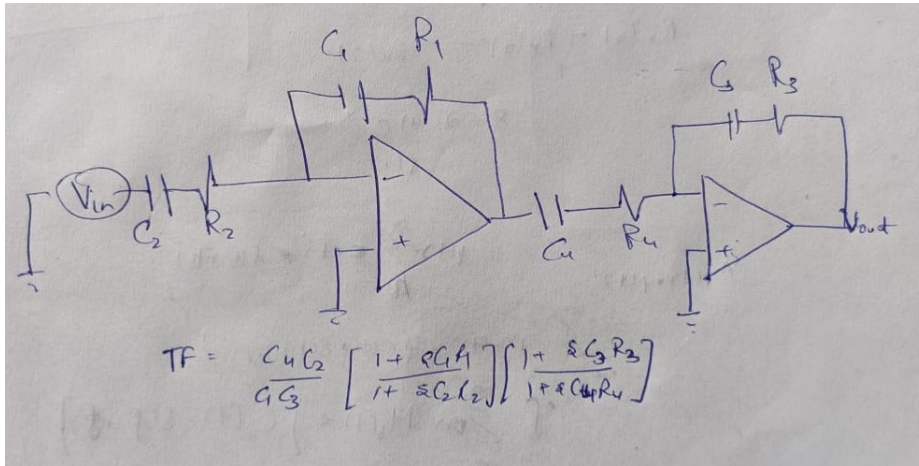 C₁ R₁
C₃ R₃
Vin
C₂ R₂
−
+
C₄ R₄
−
+
Vout
TF = C₄C₂ / C₁C₃ [ 1 + sC₁R₁ / 1 + sC₂R₂ ] [ 1 + sC₃R₃ / 1 + sC₄R₄ ]